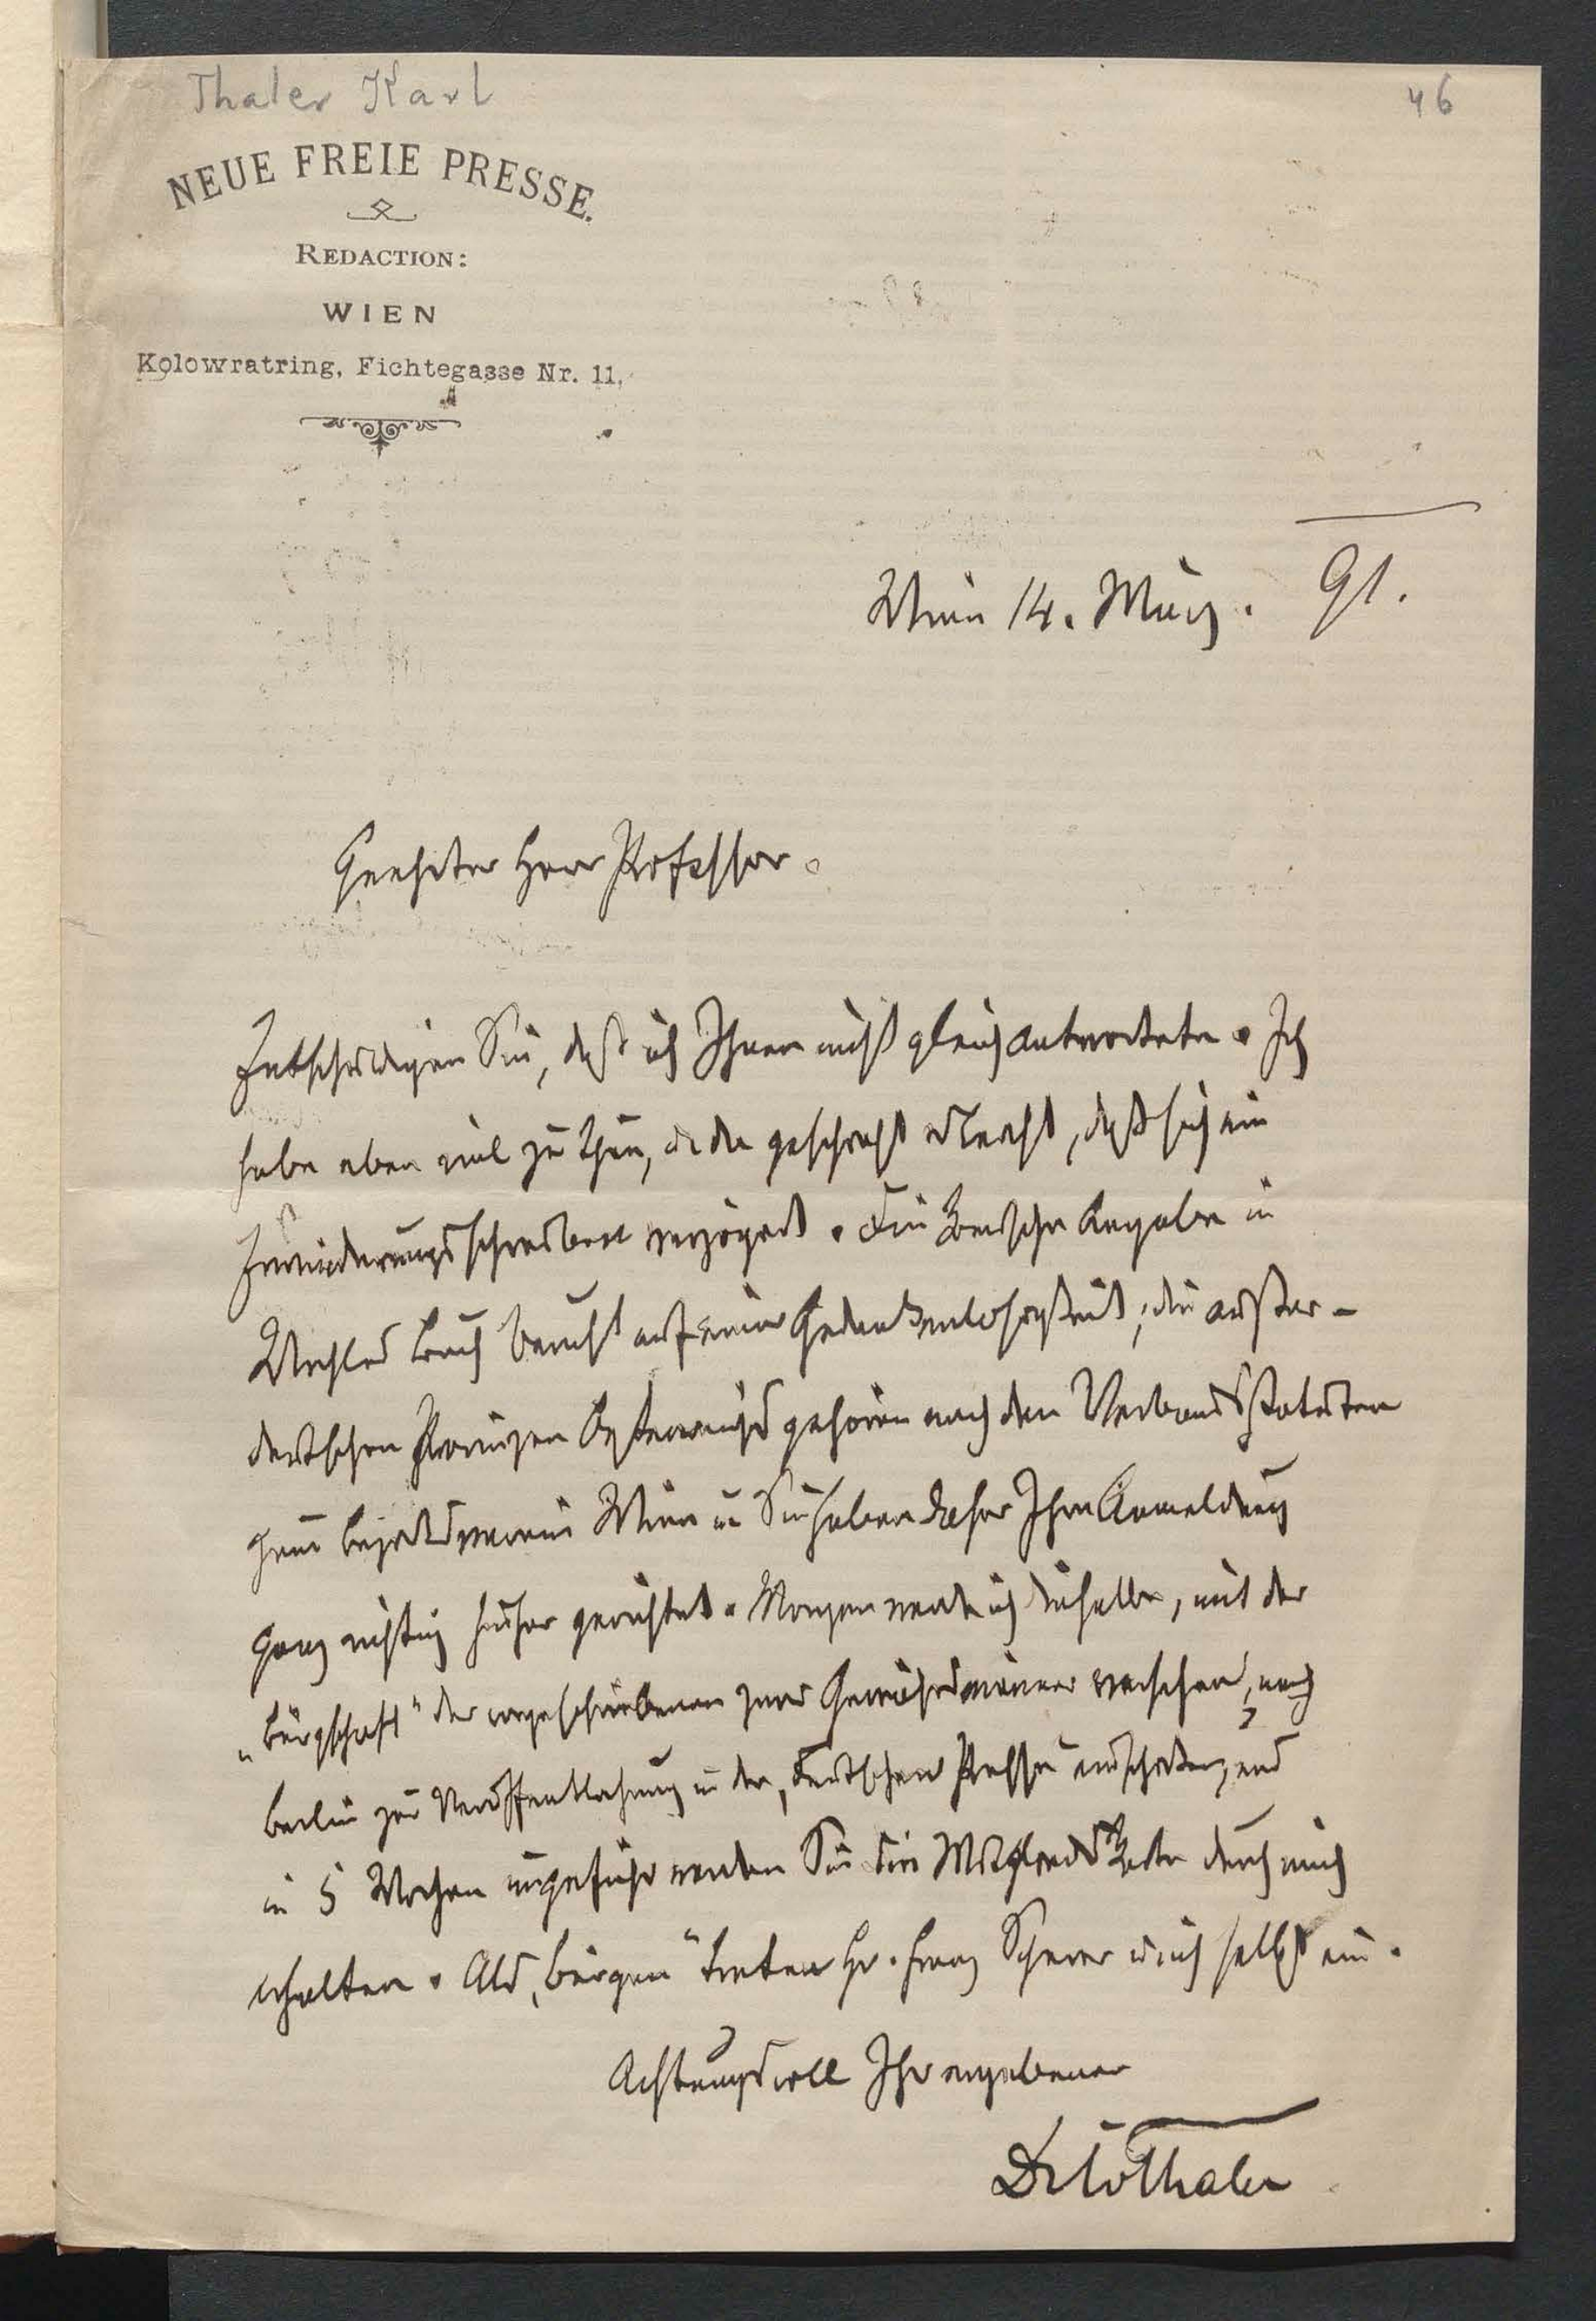 Thaler Karl
46
NEUE FREIE PRESSE.
REDACTION:
WIEN
Kolowratring, Fichtegasse Nr. 11.
Wien 14. März. 91.
Geehrter Herr Professor.
Entschuldigen Sie, daß ich Ihnen nicht gleich antwortete. Ich
habe eben viel zu thun, da geschieht es leicht, daß sich ein
Erwiderungsschreiben verzögert. Die Angabe in
Buch beruht auf einer Gedankenlosigkeit; die außer-
deutschen Provinzen Oesterreichs gehören nach den Verbandsstatuten
zum Bezirksverein Wien u Sie haben daher Ihre Anmeldung
ganz richtig hieher gerichtet. Morgen werde ich dieselbe, mit der
„Bürgschaft" der vorgeschriebenen zwei Gewährsmänner versehen, nach
Berlin zur Veröffentlichung in der „Deutschen Presse" und
in 5 Wochen ungefähr werden Sie die Mitgliedskarte durch mich
erhalten. Als „Bürgen" treten Hr. Franz Scherer u ich selbst ein.
Achtungsvoll Ihr ergebener
Dr Thaler